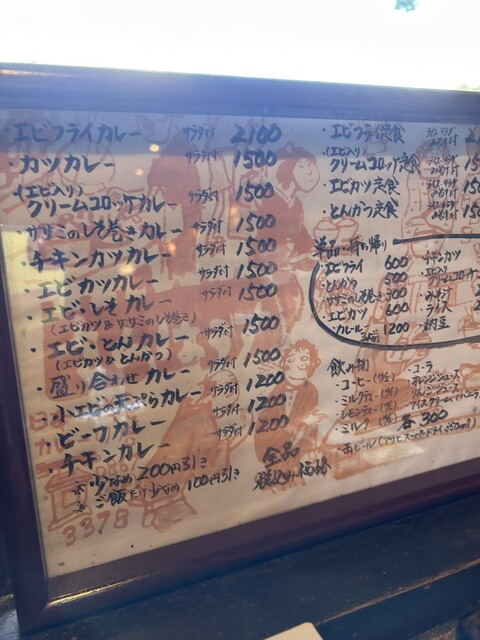 ・エビフライカレー サラダ付 2100
・カツカレー サラダ付 1500
・(エビ入り)クリームコロッケカレー サラダ付 1500
・ササミのしそ巻きカレー サラダ付 1500
・チキンカツカレー サラダ付 1500
・エビカツカレー サラダ付 1500
・エビ・しそカレー サラダ付 1500
(エビカツ&ササミのしそ巻き)
・エビ・とんカレー サラダ付 1500
(エビカツ&とんかつ)
・盛り合わせカレー サラダ付 1500
・小エビの天ぷらカレー サラダ付 1200
・ビーフカレー サラダ付 1200
・チキンカレー サラダ付 1200
※ 少なめ 200円引き
※ ご飯だけ少なめ 100円引き
全品
税込み価格
3378
・エビフライ定食
・(エビ入り)クリームコロッケ定食
・エビカツ定食
・とんかつ定食
単品・持ち帰り
・エビフライ 600
・とんかつ 500
・ササミのしそ巻き 500
・エビカツ 600
・カレールー 1200
・チキンカツ
・エビ入りクリームコロッケ
・みそ汁
・ライス
・納豆
飲み物
・コーヒー
・ミルクティー
・レモンティー
・ミルク
・コーラ
・オレンジジュース
・りんごジュース
・アイスクリーム
各 300
・缶ビール(アサヒスーパードライ